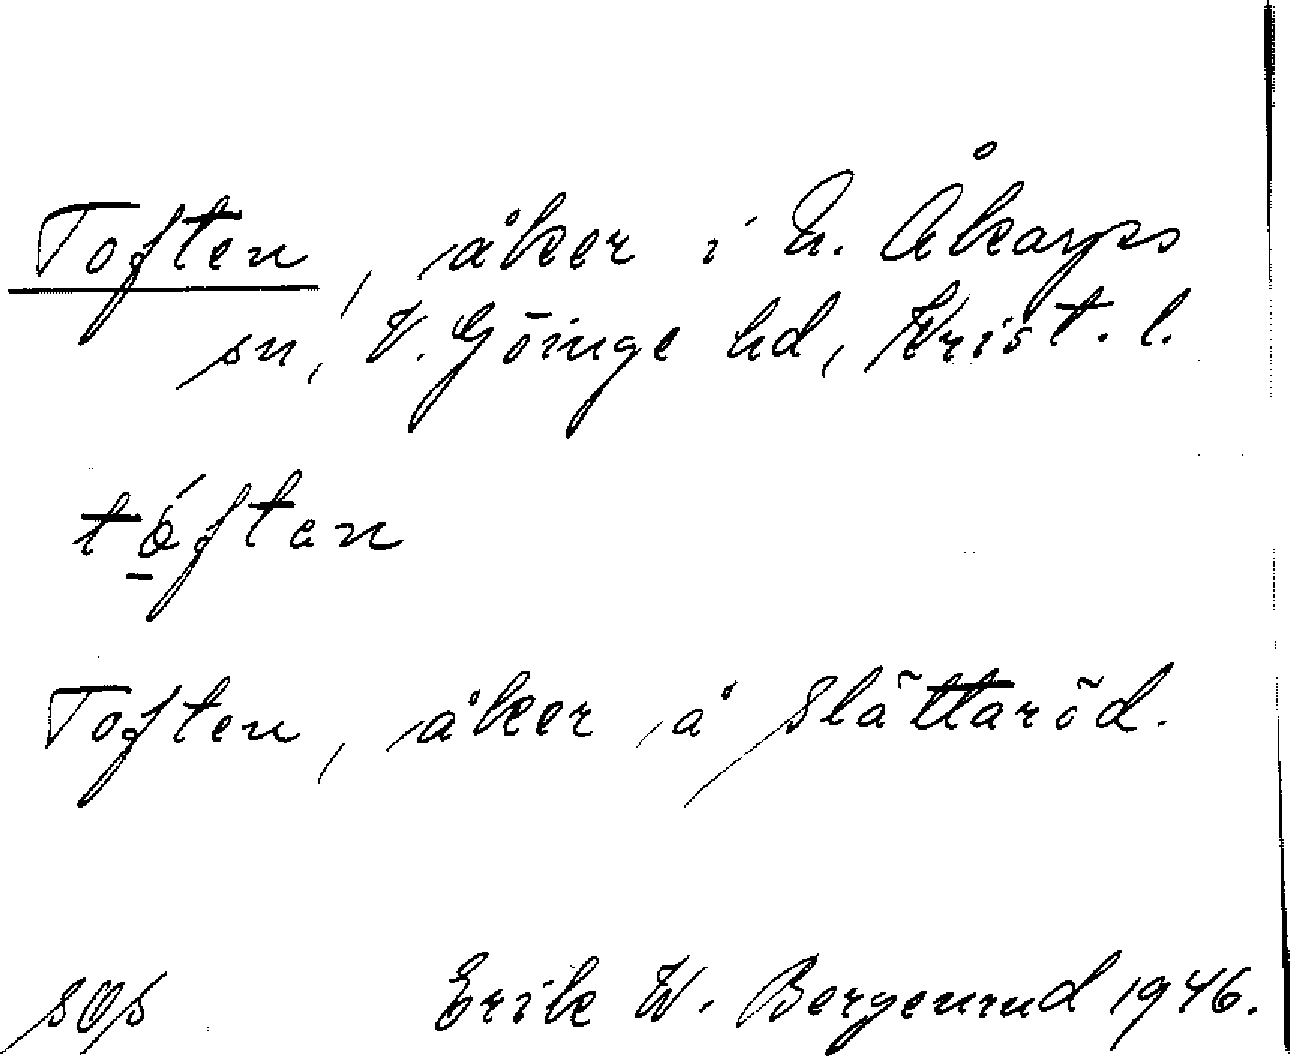 Toften, åker i N. Åkarps
sn, V. Göinge hd, Krist. l.
tóften
Toften, åker å Slättaröd.
Erik W. Bergenrud 1946.